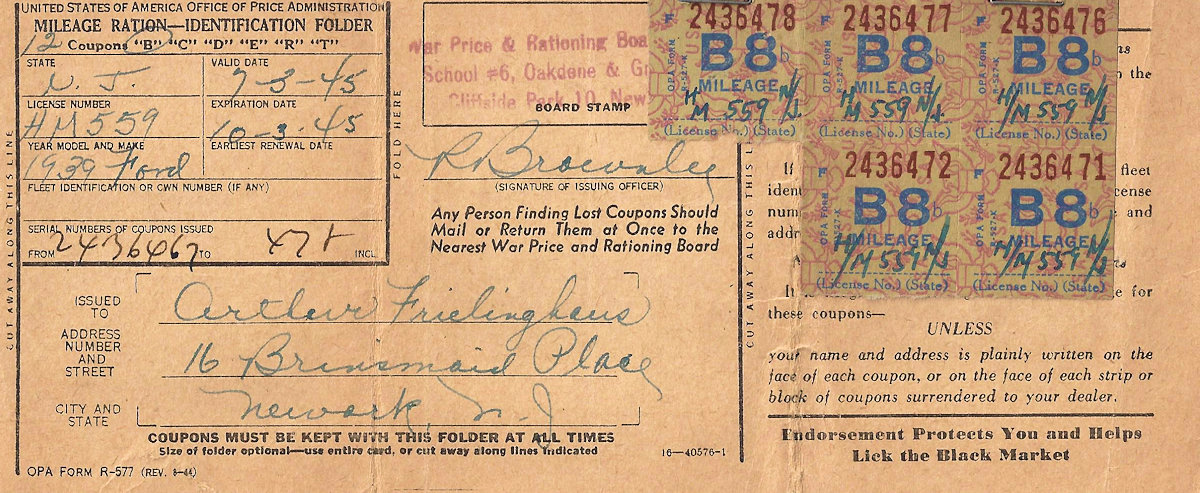 UNITED STATES OF AMERICA OFFICE OF PRICE ADMINISTRATION
MILEAGE RATION—IDENTIFICATION FOLDER
12 Coupons "B" "C" "D" "E" "R" "T"
STATE
N. J.
VALID DATE
7-3-45
LICENSE NUMBER
HM559
EXPIRATION DATE
10-3-45
YEAR MODEL AND MAKE
1939 Ford
EARLIEST RENEWAL DATE
FLEET IDENTIFICATION OR OWN NUMBER (IF ANY)
SERIAL NUMBERS OF COUPONS ISSUED
FROM 2436467 TO 478 INCL.
CUT AWAY ALONG THIS LINE
FOLD HERE
War Price & Rationing Boa
School #6, Oakdene & G
Cliffside Park 10, New
BOARD STAMP
R Brownley
(SIGNATURE OF ISSUING OFFICER)
Any Person Finding Lost Coupons Should
Mail or Return Them at Once to the
Nearest War Price and Rationing Board
ISSUED TO
Arthur Frielinghaus
ADDRESS
NUMBER
AND
STREET
16 Brinsmaid Place
CITY AND
STATE
Newark, N. J.
COUPONS MUST BE KEPT WITH THIS FOLDER AT ALL TIMES
Size of folder optional—use entire card, or cut away along lines indicated
16—40576-1
OPA FORM R-577 (REV. 8-44)
CUT AWAY ALONG THIS L
2436478
OPA FORM R-527-K
B8b
MILEAGE
HM 559 N/J
(License No.) (State)
2436477
OPA FORM R-527-K
B8b
MILEAGE
HM 559 N/J
(License No.) (State)
2436476
OPA FORM R-527-K
B8b
MILEAGE
HM 559 N/J
(License No.) (State)
2436472
OPA FORM R-527-K
B8b
MILEAGE
HM 559 N/J
(License No.) (State)
2436471
OPA FORM R-527-K
B8b
MILEAGE
HM 559 N/J
(License No.) (State)
the
If fleet
iden cense
num and
addr
It for
these coupons—
UNLESS
your name and address is plainly written on the
face of each coupon, or on the face of each strip or
block of coupons surrendered to your dealer.
Endorsement Protects You and Helps
Lick the Black Market